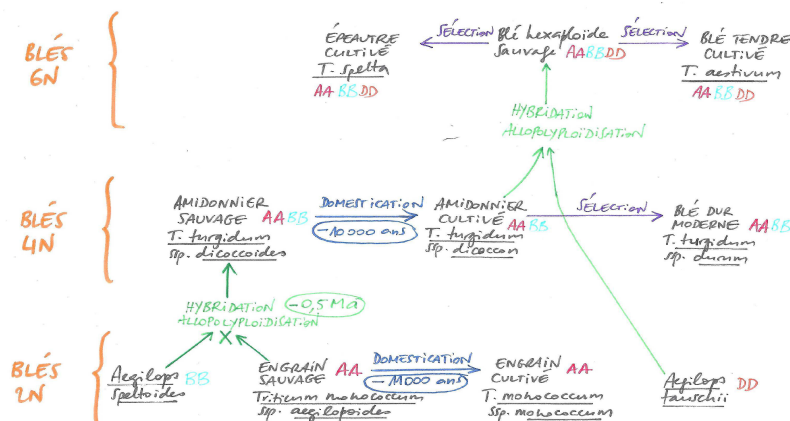 BLÉS
6N
ÉPEAUTRE
CULTIVÉ
T. spelta
AA BB DD
SÉLECTION
Blé hexaploide
Sauvage AABBDD
SÉLECTION
BLÉ TENDRE
CULTIVÉ
T. aestivum
AA BB DD
HYBRIDATION
ALLOPOLYPLOÏDISATION
BLÉS
4N
AMIDONNIER
SAUVAGE AABB
T. turgidum
ssp. dicoccoides
DOMESTICATION
-10000 ans
AMIDONNIER
CULTIVÉ AABB
T. turgidum
ssp. dicoccon
SÉLECTION
BLÉ DUR
MODERNE AABB
T. turgidum
ssp. durum
HYBRIDATION -0,5 Ma
ALLOPOLYPLOÏDISATION
X
BLÉS
2N
Aegilops BB
speltoides
ENGRAIN
SAUVAGE AA
Triticum monococcum
ssp. aegilopoides
DOMESTICATION
-11000 ans
ENGRAIN
CULTIVÉ AA
T. monococcum
ssp. monococcum
Aegilops DD
tauschii